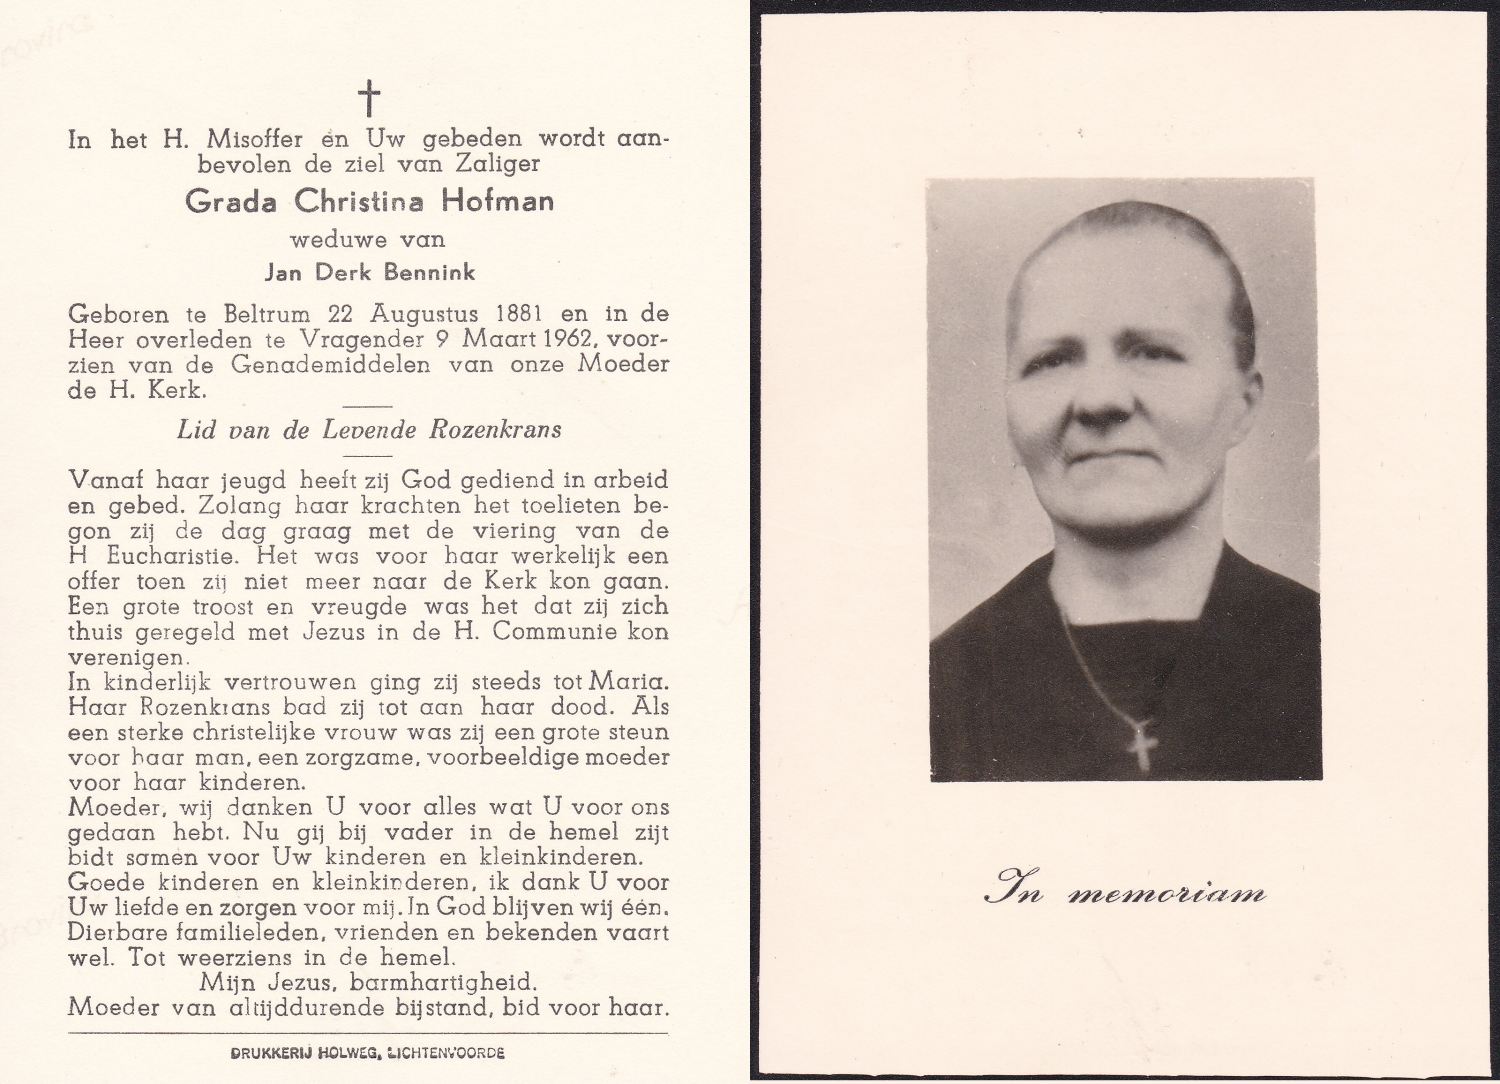 In het H. Misoffer en Uw gebeden wordt aan-
bevolen de ziel van Zaliger
Grada Christina Hofman
weduwe van
Jan Derk Bennink
Geboren te Beltrum 22 Augustus 1881 en in de
Heer overleden te Vragender 9 Maart 1962, voor-
zien van de Genademiddelen van onze Moeder
de H. Kerk.
Lid van de Levende Rozenkrans
Vanaf haar jeugd heeft zij God gediend in arbeid
en gebed. Zolang haar krachten het toelieten be-
gon zij de dag graag met de viering van de
H Eucharistie. Het was voor haar werkelijk een
offer toen zij niet meer naar de Kerk kon gaan.
Een grote troost en vreugde was het dat zij zich
thuis geregeld met Jezus in de H. Communie kon
verenigen.
In kinderlijk vertrouwen ging zij steeds tot Maria.
Haar Rozenkrans bad zij tot aan haar dood. Als
een sterke christelijke vrouw was zij een grote steun
voor haar man, een zorgzame, voorbeeldige moeder
voor haar kinderen.
Moeder, wij danken U voor alles wat U voor ons
gedaan hebt. Nu gij bij vader in de hemel zijt
bidt samen voor Uw kinderen en kleinkinderen.
Goede kinderen en kleinkinderen, ik dank U voor
Uw liefde en zorgen voor mij. In God blijven wij één.
Dierbare familieleden, vrienden en bekenden vaart
wel. Tot weerziens in de hemel.
Mijn Jezus, barmhartigheid.
Moeder van altijddurende bijstand, bid voor haar.
DRUKKERIJ HOLWEG, LICHTENVOORDE
In memoriam